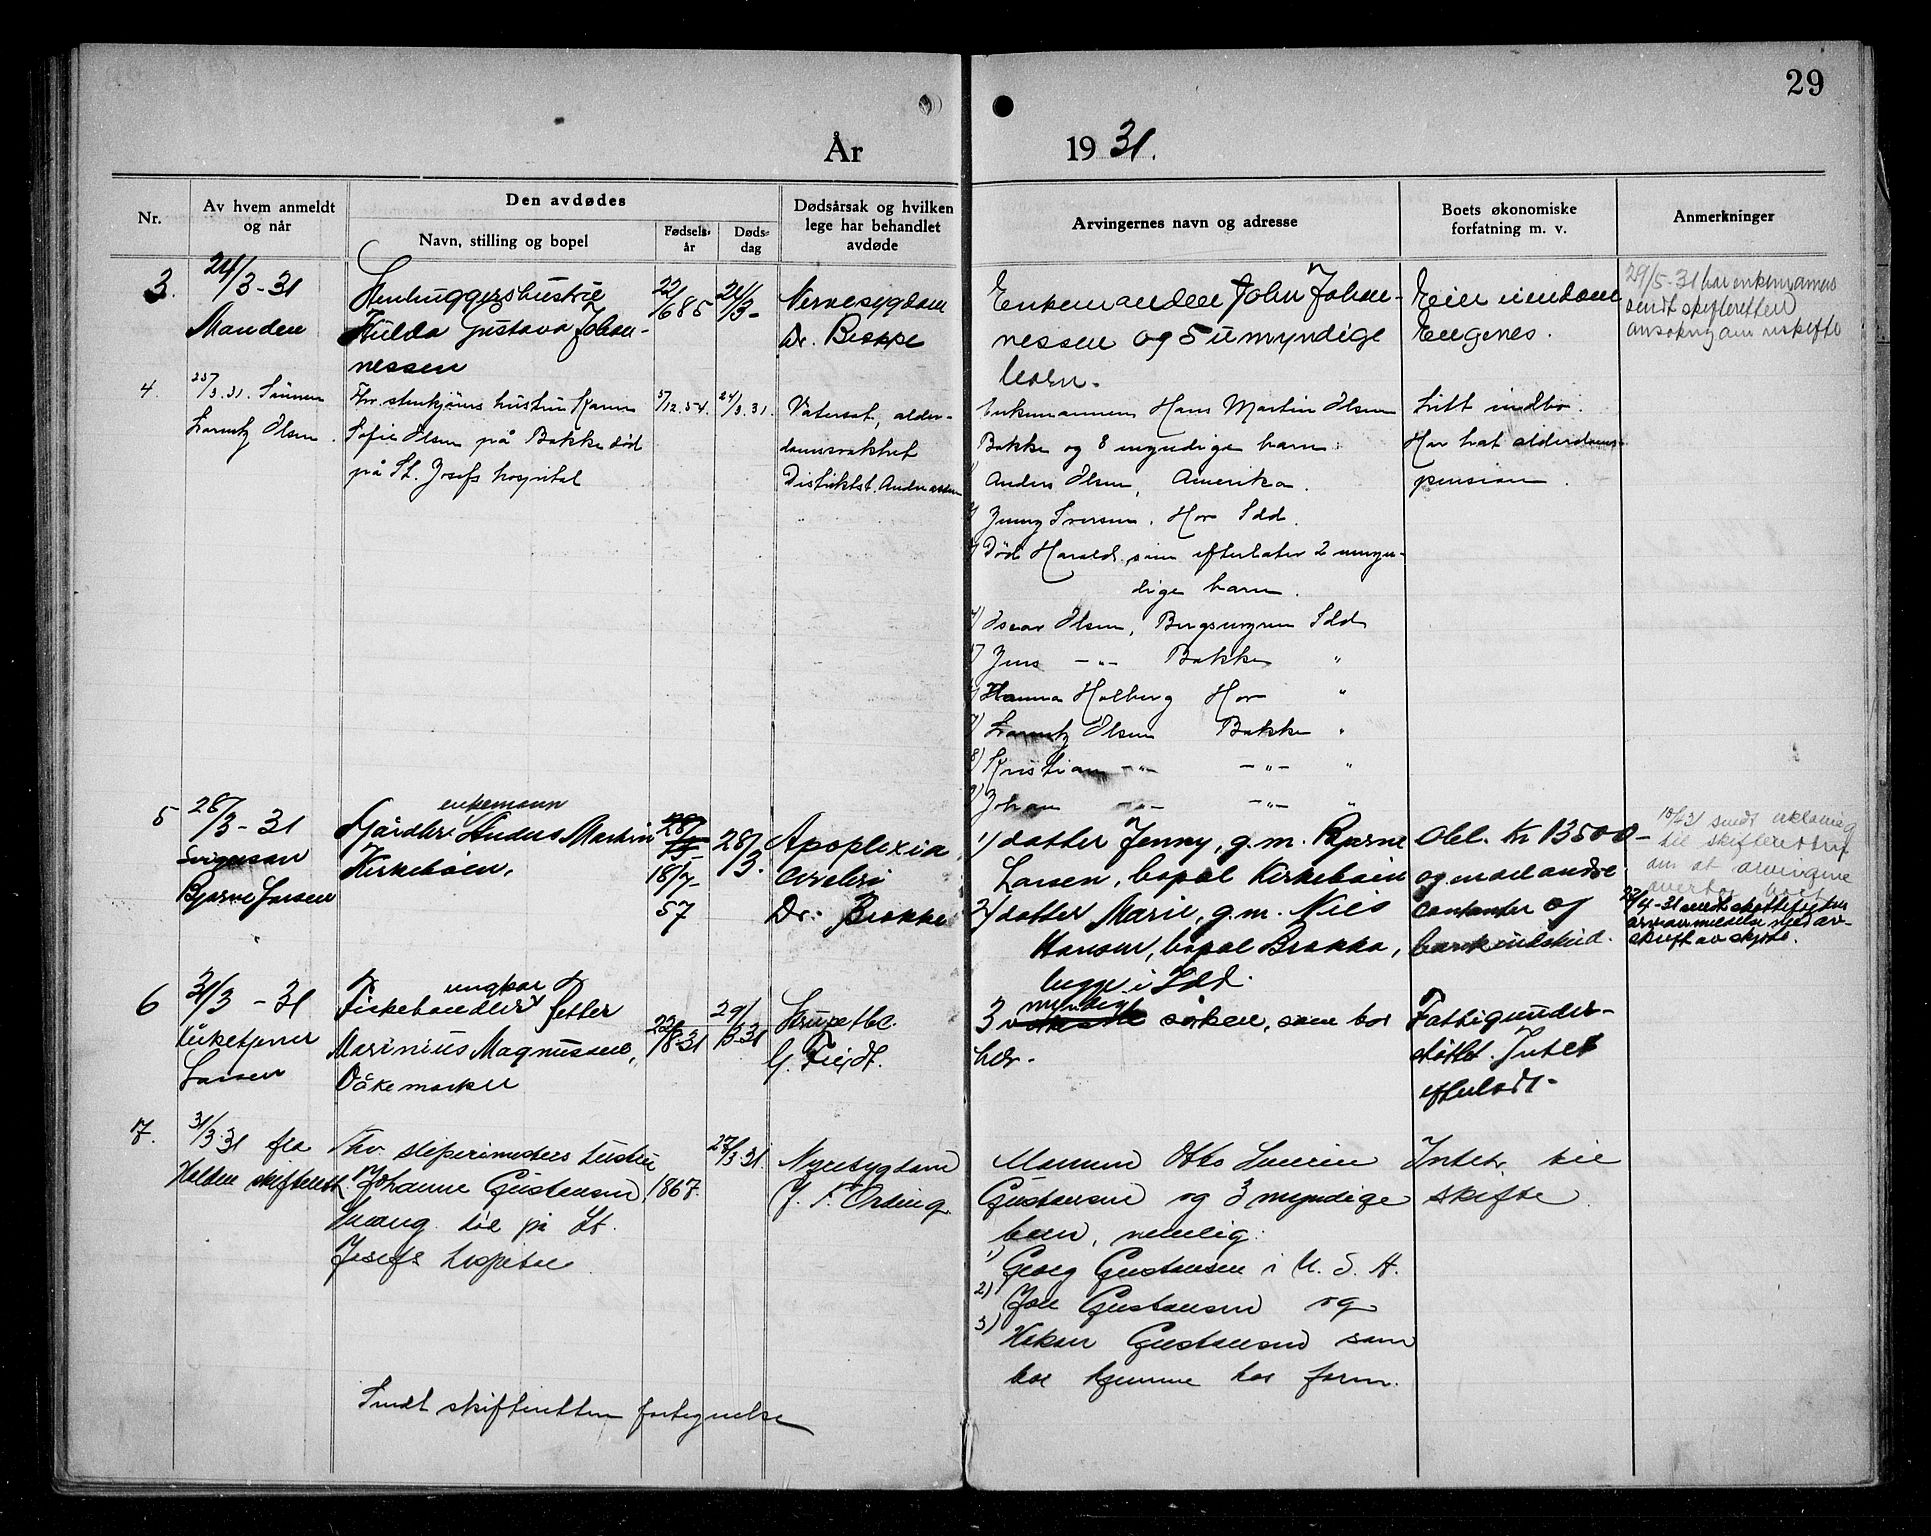 29
År 1931.
Nr.
Av hvem anmeldt
og når
Den avdødes
Navn, stilling og bopel
Fødsels-
år
Døds-
dag
Dødsårsak og hvilken
lege har behandlet
avdøde
Arvingernes navn og adresse
Boets økonomiske
forfatning m. v.
Anmerkninger
3.
24/3-31
Manden
Stenhuggershustru
Hulda Gustava Johan-
nessen
22/6 85
21/3-
Nervesygdom
Dr. Brekke
Enkemanden John Johan-
nessen og 5 umyndige
barn.
Eier eiendom
Engenes.
29/5-31 har enkemannen
sendt skifteretten
ansøkning om uskifte
4.
25/3.31. Sønnen
Lorentz Olsen.
Fhv. stenkjørers hustru Karen
Sofie Olsen på Bakke død
på St. Josefs hospital
5/12.54.
24/3.31.
Vatersot, alder-
domssvakhet
Distriktsl. Andreassen
Enkemannen Hans Martin Olsen
Bakke og 8 myndige barn:
1) Anders Olsen, Amerika.
2) Jenny Iversen, Hov Idd.
3) Død Harald, som efterlater 2 umyn-
dige barn.
4) Oscar Olsen, Bergsmyren Idd
5) Jens -"- Bakke "
6) Hanna Holberg Hov "
7) Lorentz Olsen Bakke "
8) Kristian -"- -"- "
9) Johan -"- -"- "
Litt indbo.
Har hat alderdoms-
pension.
5
28/3-31
Svigersøn
Bjarne Larsen
enkemann
Gårdbr. Anders Martin
Kirkebøen,
18/7-
57
28/3.
Apoplexia
cerebri
Dr. Brekke
1) datter Jenny, g.m. Bjarne
Larsen, bopæl Kirkebøen
2) datter Marie, g.m. Nils
Hansen, bopæl Brekke,
begge i Idd.
Obl. Kr 13500-
og med andre
contanter og
bankindskud.
10/4 31 sendt erklæring
til skifteretten
om at arvingene
overtar boet
22/4-31 sendt
arveanmeldelse med av-
skrift av skjøte.
6
31/3-31
Kirketjener
Larsen
ungkar
Fiskehandler Petter
Marinius Magnussen,
Bakemarken
22/8-31
29/3-31
Strupetbc.
G. Feidt.
3 myndige søsken, som bor
her.
Fattigunder-
støttet. Intet
efterladt-
7.
31/3.31 fra
Halden skifterett
Fhv. sliperimesters hustru
Johanne Gustavsen,
Svang. død på St.
Josefs hospital.
1867.
27/3.31.
Nyresygdom
J. F. Ording.
Mannen Otto Laurin
Gustavsen og 3 myndige
barn, nemlig:
1) Georg Gustavsen i U.S.A.
2) Joel Gustavsen og
3) Håkon Gustavsen som
bor hjemme hos faren.
Intet til
skifte.
Sendt skifteretten fortegnelse